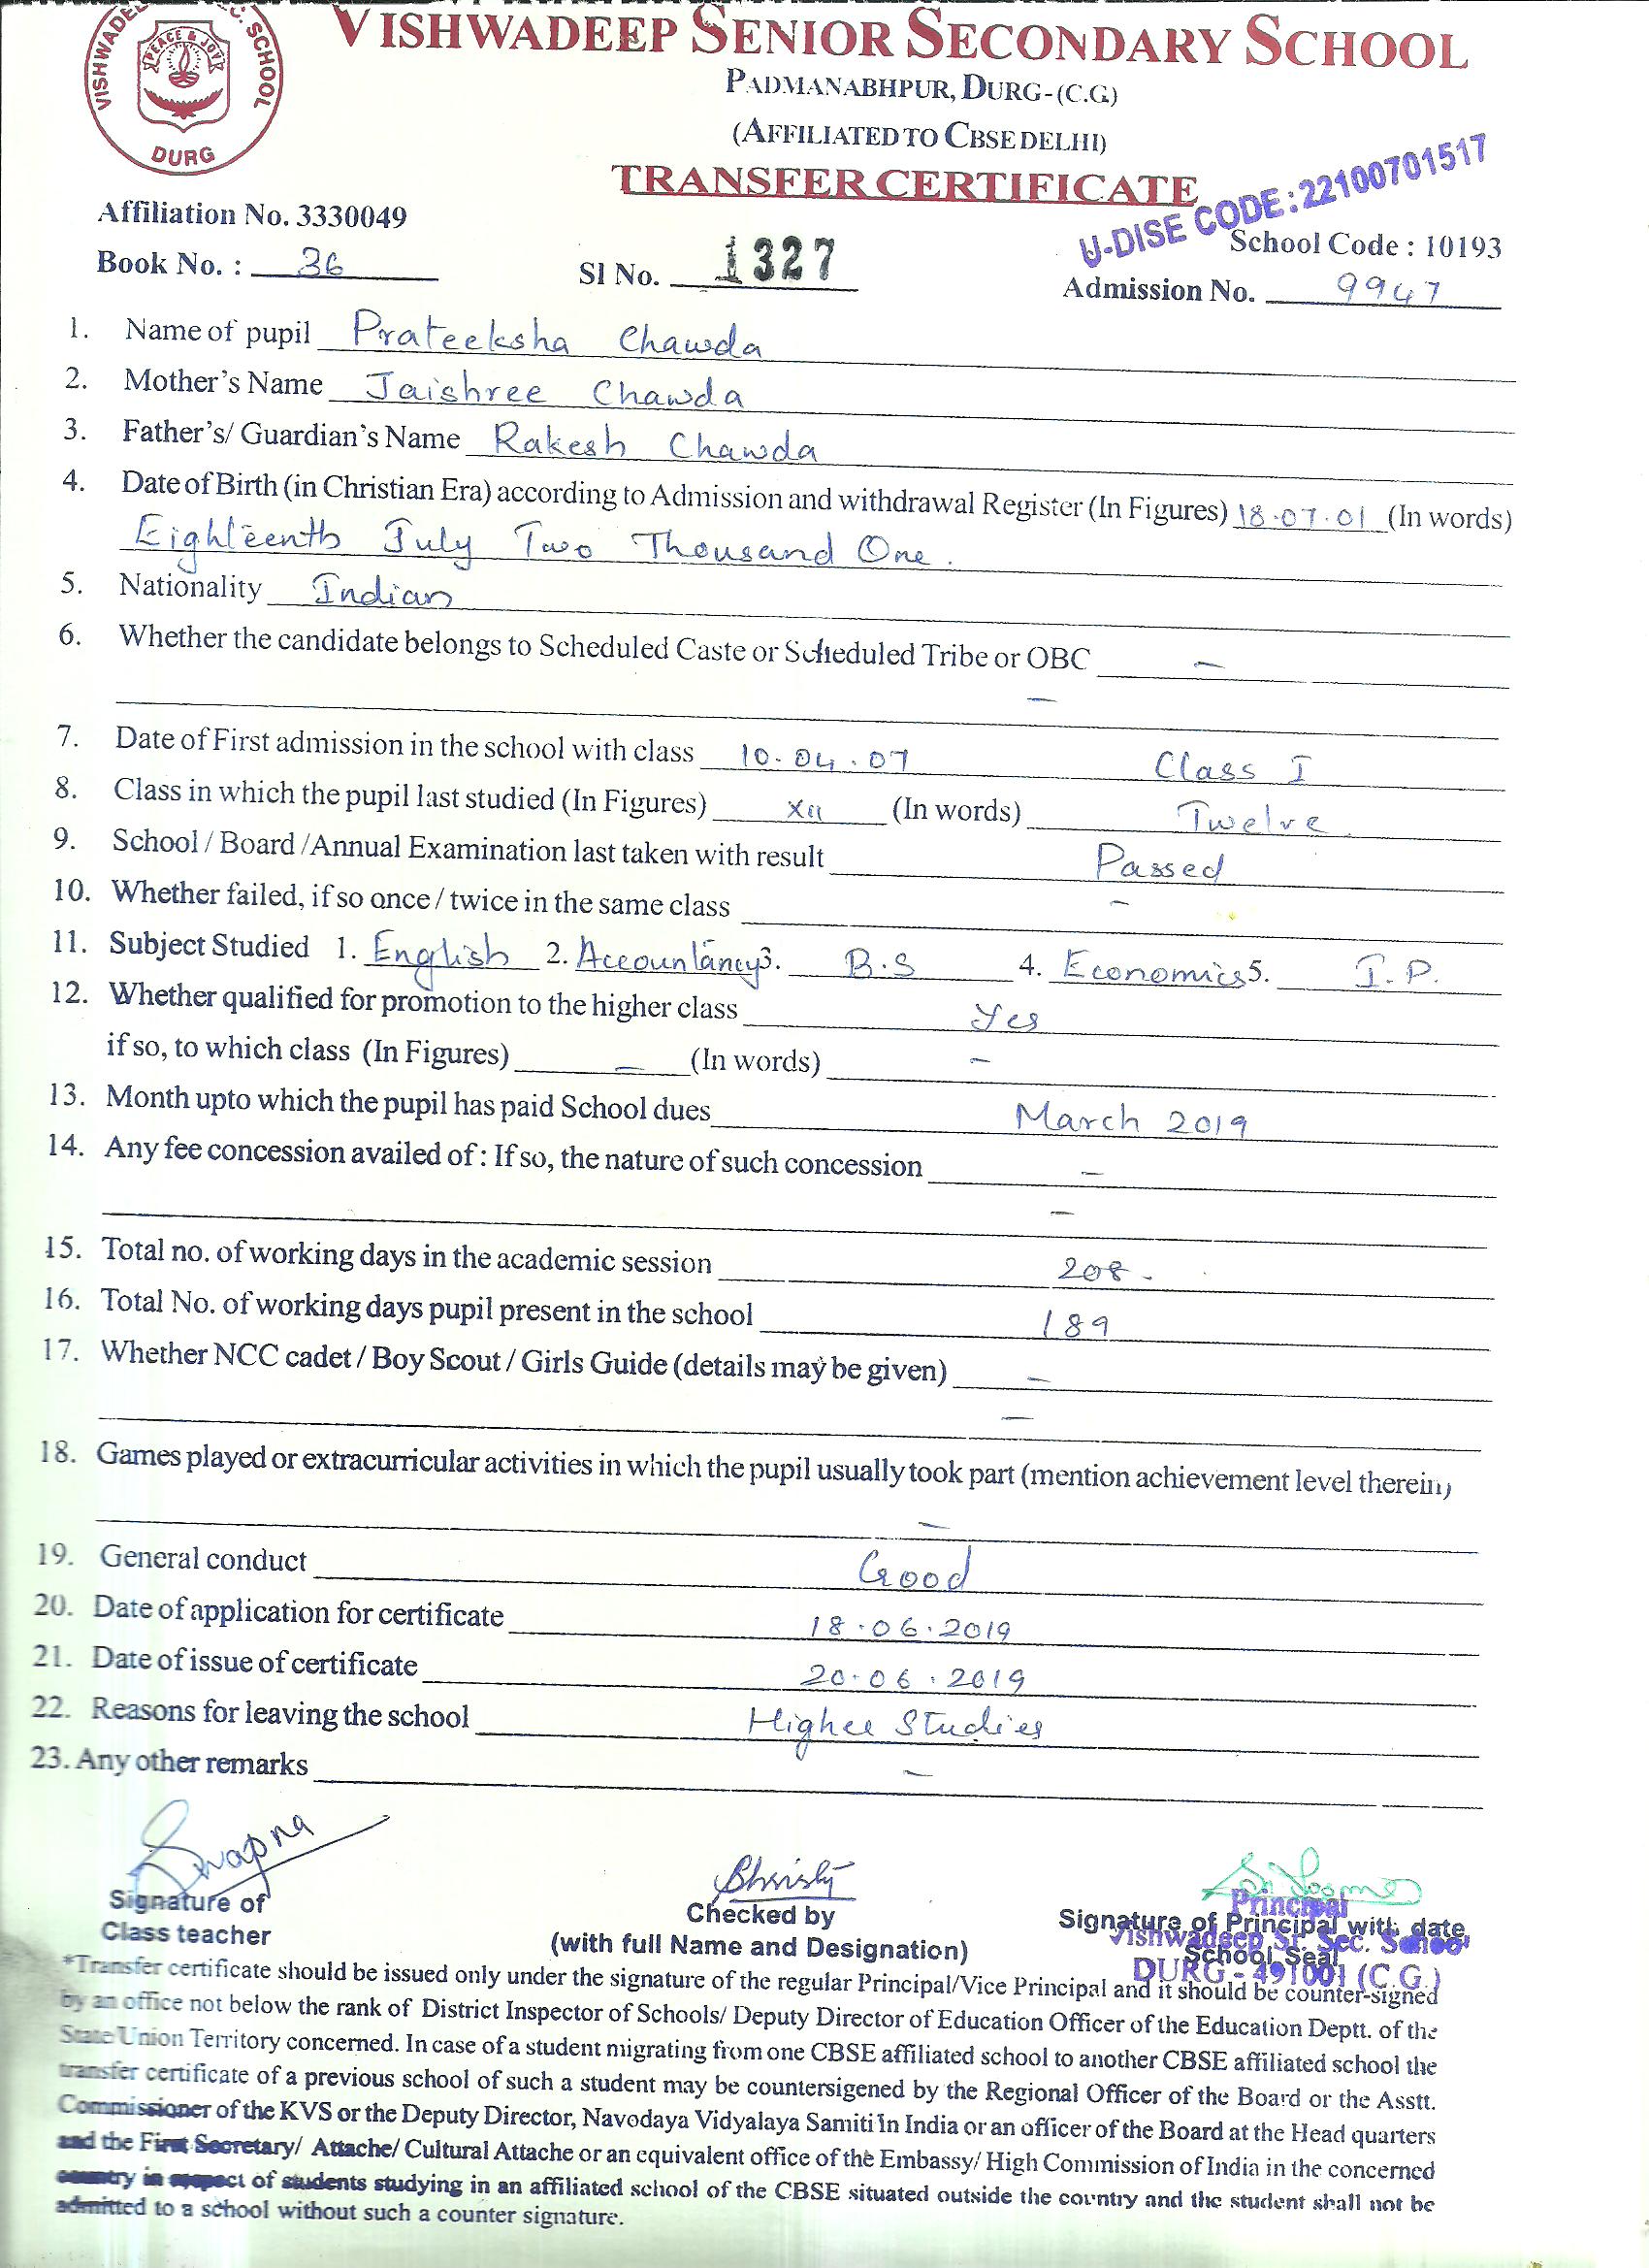 VISHWADEEP SENIOR SECONDARY SCHOOL
PEACE & JOY
DURG
PADMANABHPUR, DURG-(C.G.)
(AFFILIATED TO CBSE DELHI)
TRANSFER CERTIFICATE
U-DISE CODE:22100701517
Affiliation No. 3330049
School Code : 10193
Book No. : 36 Sl No. 1327 Admission No. 9947
1. Name of pupil Prateeksha Chawda
2. Mother's Name Jaishree Chawda
3. Father's/ Guardian's Name Rakesh Chawda
4. Date of Birth (in Christian Era) according to Admission and withdrawal Register (In Figures) 18.07.01 (In words)
Eighteenth July Two Thousand One.
5. Nationality Indian
6. Whether the candidate belongs to Scheduled Caste or Scheduled Tribe or OBC –
–
7. Date of First admission in the school with class 10.04.07 Class I
8. Class in which the pupil last studied (In Figures) XII (In words) Twelve
9. School / Board /Annual Examination last taken with result Passed
10. Whether failed, if so once / twice in the same class –
11. Subject Studied 1. English 2. Accountancy 3. B.S 4. Economics 5. I.P.
12. Whether qualified for promotion to the higher class Yes
if so, to which class (In Figures) – (In words) –
13. Month upto which the pupil has paid School dues March 2019
14. Any fee concession availed of : If so, the nature of such concession –
–
15. Total no. of working days in the academic session 208.
16. Total No. of working days pupil present in the school 189
17. Whether NCC cadet / Boy Scout / Girls Guide (details may be given) –
–
18. Games played or extracurricular activities in which the pupil usually took part (mention achievement level therein)
–
19. General conduct Good
20. Date of application for certificate 18.06.2019
21. Date of issue of certificate 20.06.2019
22. Reasons for leaving the school Higher Studies
23. Any other remarks –
Swapna
Signature of
Class teacher
Christy
Checked by
(with full Name and Designation)
Principal
Signature of Principal with date
Vishwadeep Sr. Sec. School
School Seal
DURG - 491001 (C.G.)
*Transfer certificate should be issued only under the signature of the regular Principal/Vice Principal and it should be counter-signed
by an office not below the rank of District Inspector of Schools/ Deputy Director of Education Officer of the Education Deptt. of the
State Union Territory concerned. In case of a student migrating from one CBSE affiliated school to another CBSE affiliated school the
transfer certificate of a previous school of such a student may be countersigened by the Regional Officer of the Board or the Asstt.
Commissioner of the KVS or the Deputy Director, Navodaya Vidyalaya Samiti in India or an officer of the Board at the Head quarters
and the First Secretary/ Attache/ Cultural Attache or an equivalent office of the Embassy/ High Commission of India in the concerned
country in respect of students studying in an affiliated school of the CBSE situated outside the country and the student shall not be
admitted to a school without such a counter signature.